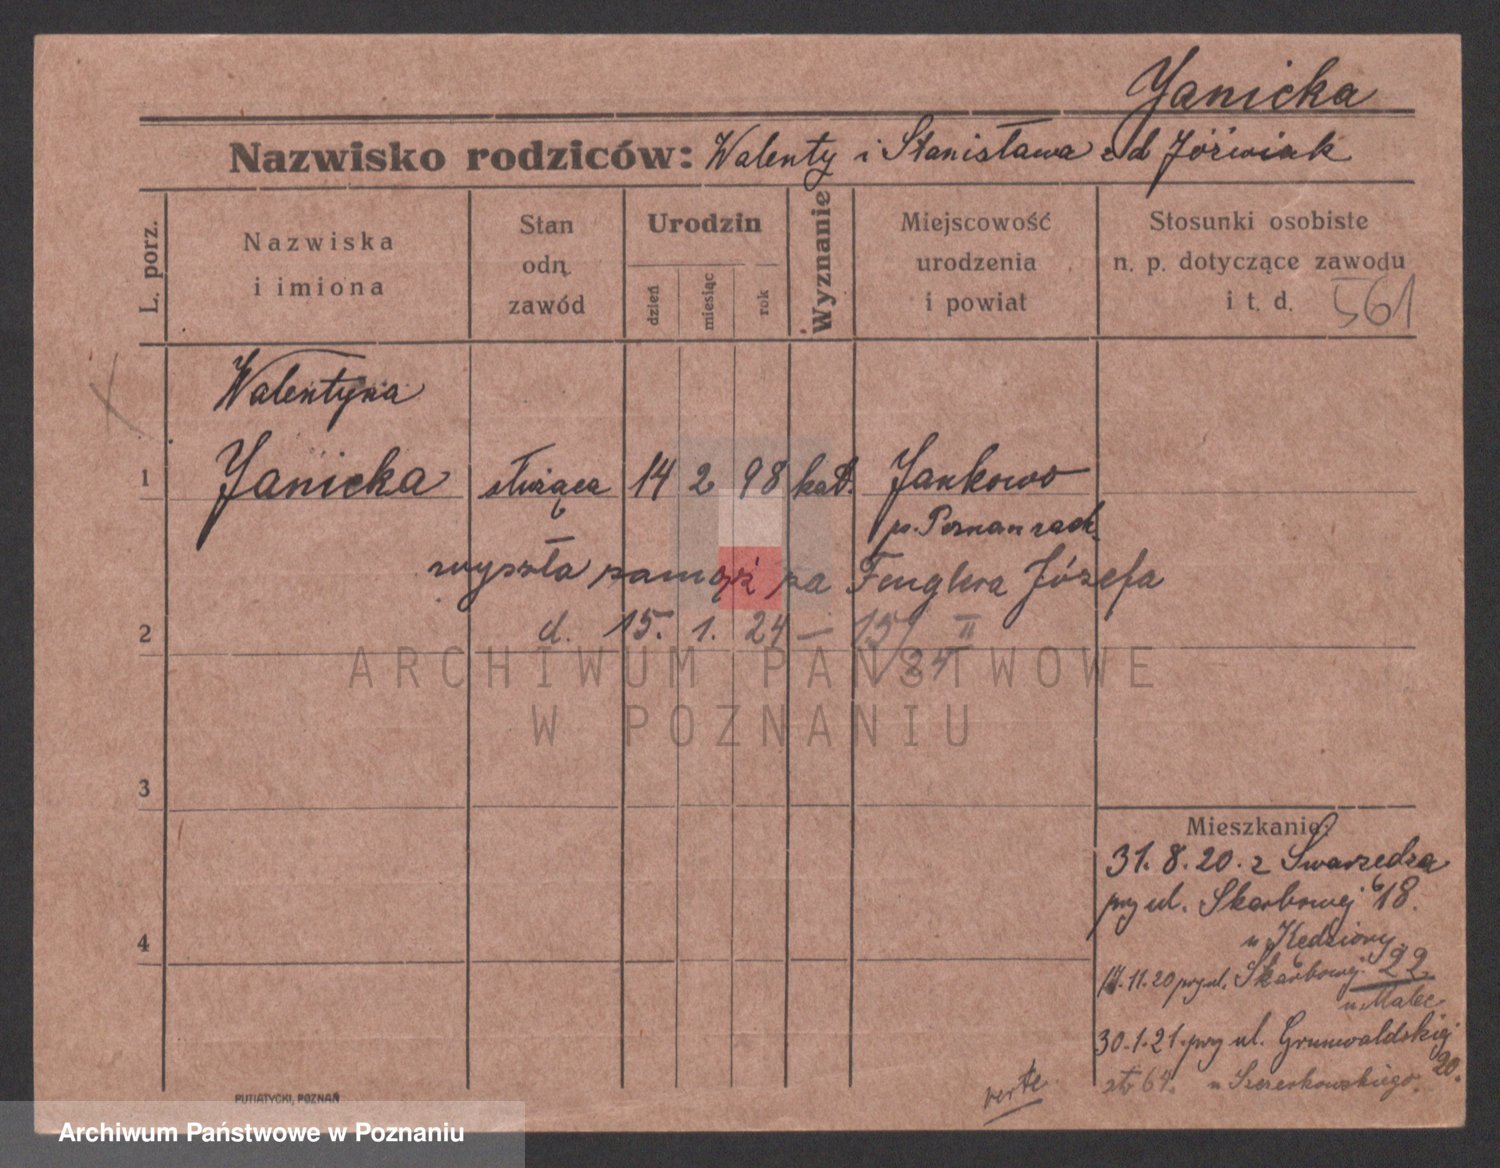 Janicka
Nazwisko rodziców: Walenty i Stanisława z d Jóźwiak
L. porz.
Nazwiska
i imiona
Stan
odn.
zawód
Urodzin
dzień
miesiąc
rok
Wyznanie
Miejscowość
urodzenia
i powiat
Stosunki osobiste
n. p. dotyczące zawodu
i t. d. 561
Walentyna
1 Janicka służąca 14 2 98 kat. Jankowo
p. Poznań zach.
wyszła zamąż za Fenglera Józefa
2 d. 15. 1. 24 — 159 II
24
3
4
Mieszkanie:
31. 8. 20. z Swarzędza
przy ul. Skarbowej 18.
u Kędziory
11.20 przy ul. Skarbowej 22
u Malec
30.1.21. przy ul. Grunwaldskiej
20.
64. u
verte
PUTIATYCKI, POZNAŃ
ARCHIWUM PAŃSTWOWE
W POZNANIU
Archiwum Państwowe w Poznaniu